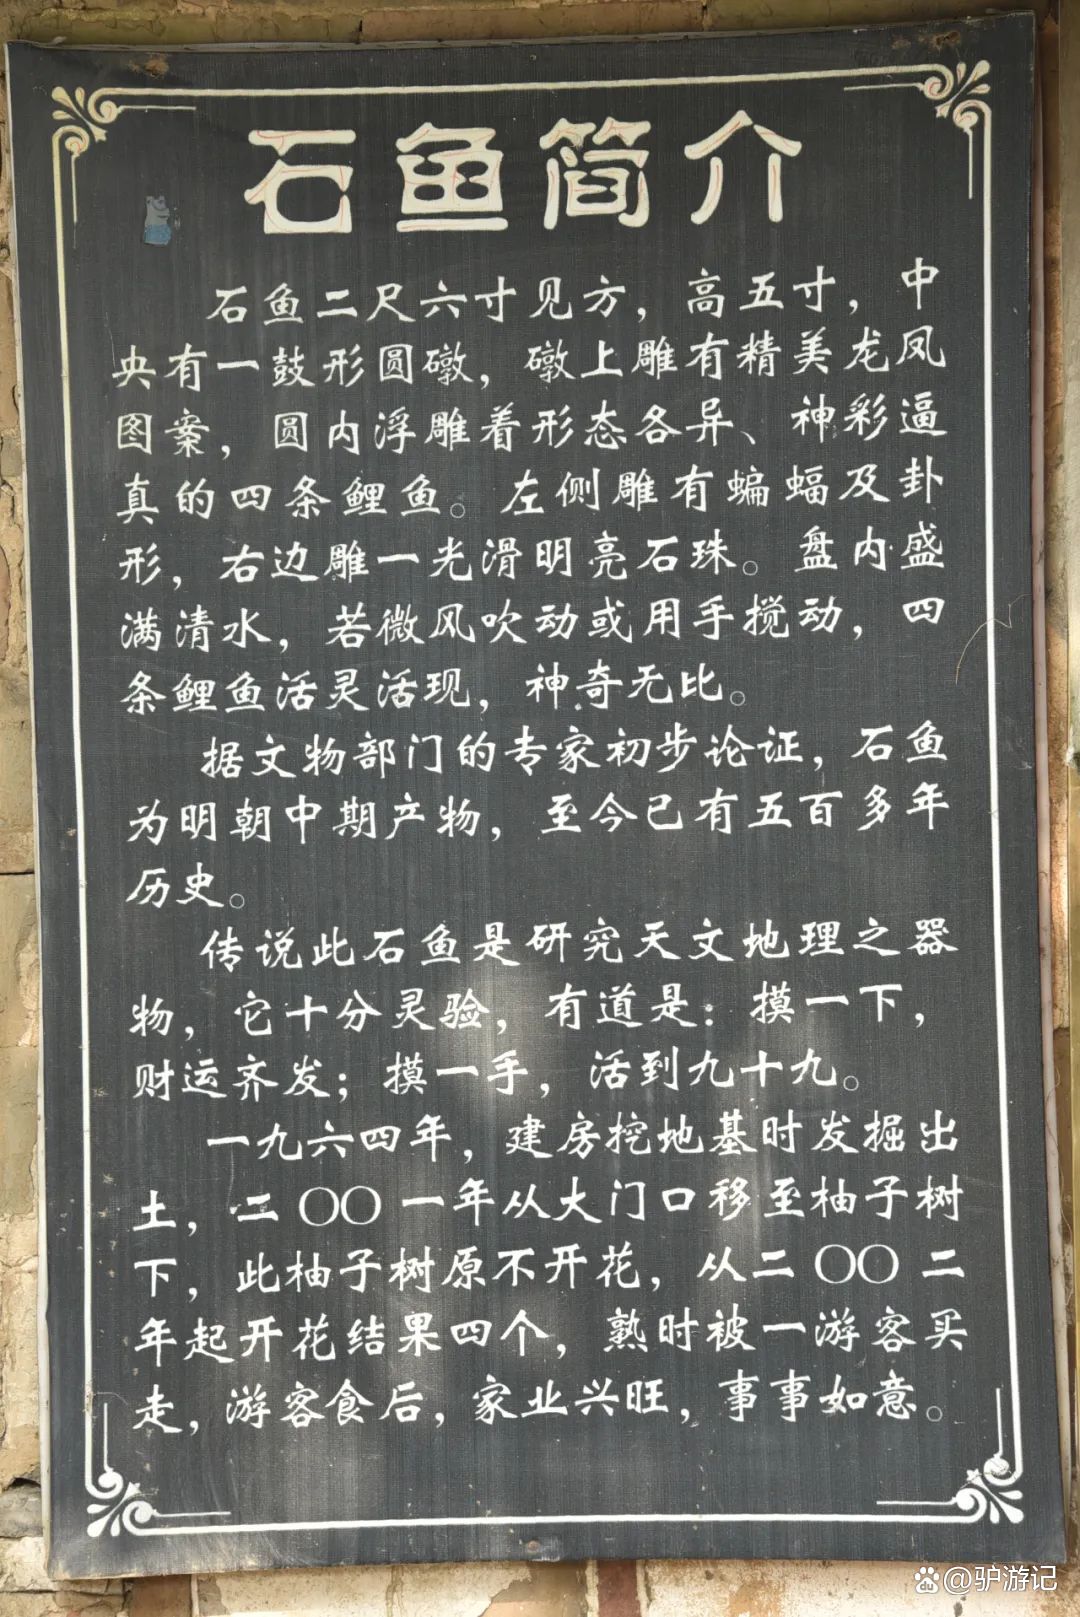 石鱼简介
石鱼二尺六寸见方，高五寸，中
央有一鼓形圆礅，礅上雕有精美龙凤
图案，圆内浮雕着形态各异、神彩逼
真的四条鲤鱼。左侧雕有蝙蝠及卦
形，右边雕一光滑明亮石珠。盘内盛
满清水，若微风吹动或用手搅动，四
条鲤鱼活灵活现，神奇无比。
据文物部门的专家初步论证，石鱼
为明朝中期产物，至今已有五百多年
历史。
传说此石鱼是研究天文地理之器
物，它十分灵验，有道是：摸一下，
财运齐发；摸一手，活到九十九。
一九六四年，建房挖地基时发掘出
土，二〇〇一年从大门口移至柚子树
下，此柚子树原不开花，从二〇〇二
年起开花结果四个，熟时被一游客买
走，游客食后，家业兴旺，事事如意。
du@驴游记